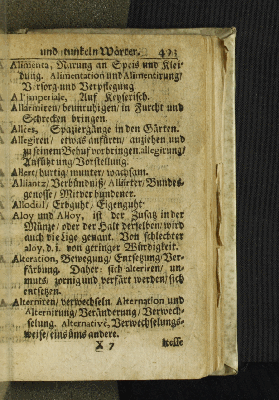 und tunkeln Wörter. 493
Alimenta, Narung an Speis und Klei-
dung. Alimentation und Alimentirung/
Versorg und Verpflegung
Al' imperiale, Auf Keyserisch.
Allarmiren/ beunruhigen/ in Furcht und
Schrecken bringen.
Allées, Spaziergänge in den Gärten.
Allegiren/ etwas anführen/ anziehen und
zu seinem Behuf vorbringen. allegirung/
Anführung/ Vorstellung.
Allert/ hurtig/ munter/ wachsam.
Alliantz/ Verbündniß/ Alliirter/ Bundes-
genosse/ Mitverbundener.
Allodial/ Erbguht/ Eigenguht
Aloy und Alloy, ist der Zusatz in der
Münze/ oder der Halt derselben/ wird
auch die Lige genant. Von schlechter
aloy, d. i. von geringer Würdigkeit.
Alteration, Bewegung/ Entsetzung/ Ver-
färbung. Daher: sich alteriren/ un-
muts/ zornig und verfärt werden/ sich
entsetzen.
Alterniren/ verwechseln. Alternation und
Alternirung/ Veränderung/ Verwech-
selung. Alternative, Verwechselungs-
weise/ eins üms andere.
X 7